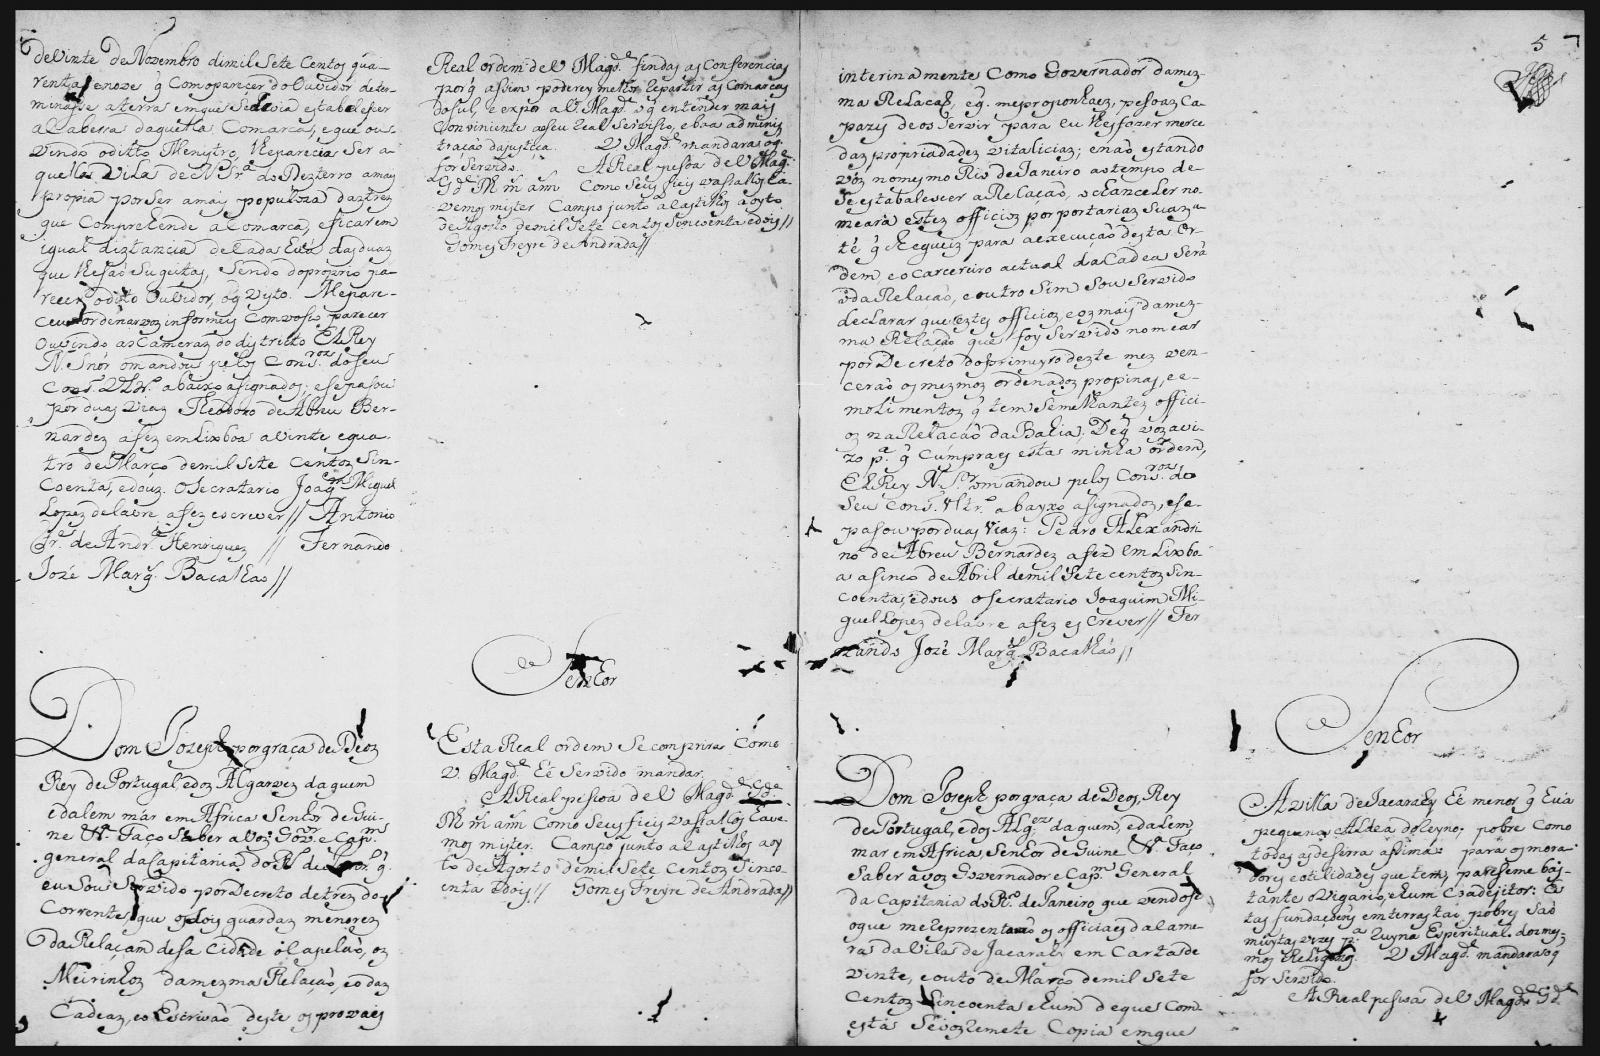 de Vinte de Novembro dimil Sete Centos qua-
renta, enove q̃ Comoparecer do Ouvidor deter-
minase aterra emque Sedevia estabeleser
aCabessa daquella Comarca, eque ou-
vindo oditto Menystro, Hepareçia Ser a-
quella Villa de N. Sr.ª do Dezterro amais
propia porSer amais populoza daztrez
que Comprehende aComarca, eficarem
igual distancia deCada hũa dasduaz
que lhesaõ Sugeitas, Sendo doproprio pa-
recer odito Ouvidor, oq̃ Visto. Mepare-
ceu ordenarvos informeis Comvoso parecer
Ouvindo asCameraz do distritto ElRey
N. Snór omandou pelos Cons.ros doseu
Cons.º Vltr.º abaixo asignados; esepasou
por duas viaz Theodoro de Abreu Ber-
nardez afez em Lixboa avinte equa-
tro de Março demil Sete Centos Sin-
coenta, edouz. O Secratario Joaq.m Miguel
Lopez delavre afez escrever // Antonio
Fr.e de Andr.e Henriquez // Fernando
Jozé Marq̃. Bacalhao //
Dom Jozeph por graça de Deoz
Rey de Portugal, edoz Algarvez daquem
edalem mar em Africa Senhor de Gui-
ne &.ª Faço Saber avoz Gov.or e Cap.m
general daCapitania do R.º de Jan.ro q̃
eu Sou Servido por Decreto detrez do
Corrente, que osdois guardaz menorez
da Relaçam desa Cidade oCapelaõ, os
Meirinhoz damezma Relaçaõ, eodaz
Cadeaz, eo Escrivaõ deste os provaes
Real ordem de V. Magd.e findas as Conferencias
porq̃ asim poderey melhor Repartir as Comarcas
do Sul, e expor a V. Magd.e oq̃ entender mais
Conviniente aoseu Real Servisso, eboa adminiz-
traçaõ dajustiça. V. Magd.e mandara oq̃
for Servido. A Real pesoa de V. Mag.e
Gd.e Ds. m. an. Como Seus fieis vassallos Ha-
vemos mister Campo junto aCastilhos a oyto
de Agosto demil Sete Centos Sincoenta edois //
Gomes Freyre de Andrada //
Senhor
Esta Real ordem Se comprira Como
V. Magd.e hé Servido mandar.
A Real pessoa de V. Magd.e Gd.e
Ds. m. an. Como Seus fieis vassallos Have-
mos mister. Campo junto aCastilhos aoy-
to de Agosto demil Sete Centos Sinco-
enta edois // Gomes Freyre de Andrada //
5
interinamente Como Governador damez-
ma Relaçaõ, eq̃. meproponhaez, pesoaz Ca-
pazes deos Servir para eu lhes fazer merce
daz propriadadez vitaliciaz; enaõ estando
vóz nomesmo Rio de Janeiro aotempo de
Se estabaleser aRelaçaõ, o chanceler no-
meará estez officioz por portariaz Suaz a-
té q̃ chegueiz para aexecuçaõ desta or-
dem, eoCarcereiro actual daCadea Será
oda Relacaõ, e outro Sim Sou Servido
declarar que estes officioz, eoz mais damez-
ma Relaçaõ que foy Servido nomear
por Decreto doprimeyro dezte mez ven-
ceraõ os mezmoz ordenadoz propinas, e e-
molimentoz q̃ tem Semelhantez offici-
oz na Relacaõ daBahia; Deq̃ vozavi-
zo p.ª q̃ Cumpraes esta minha ordem,
ElRey N. S.or omandou pelos Cons.ros do
Seu Cons.º Vltr.º abayxo asignadoz, ese-
pasou porduas viaz: Pedro Alexandri-
no de Abreu Bernardez afez em Lixbo-
a asinco de Abril demil Sete centos Sin-
coenta, edous oSecratario Joaquim Mi-
guel Lopez delavre afez escrever // Fer-
nando Jozé Marq̃. Bacalhaó //
Dom Jozeph por graça de Deos, Rey
de Portugal, edos Alg.ez daquem, edalem
mar em Africa, Senhor de Guine &.ª Faço
Saber avoz Governador e Cap.m General
da Capitania do R.º de Janeiro que vendose
oque me Reprezentaraõ os officiaes daCame-
ras daVila de Jacarahy em Cartas de
vinte, e outo de Março demil Sete
Centos Sincoenta ehum deque Com-
estas Se voz Remete Copia emque
Senhor
A villa deJacarahy hé menor q̃ huã
pequena Aldea do Reyno; pobre como
todas as deserra asima: para os mora-
dores eotilidades que tem, pareseme bas-
tante o vigario, ehum Coadejutor: Es-
tas fundações em terras tao pobres Saõ
muytas vezes p.ª Ruyna Espiritual. dozmes-
mos Religiozos. V. Magd.e mandara oq̃
for Servido.
A Real pesoa de V. Magd.e Gd.e